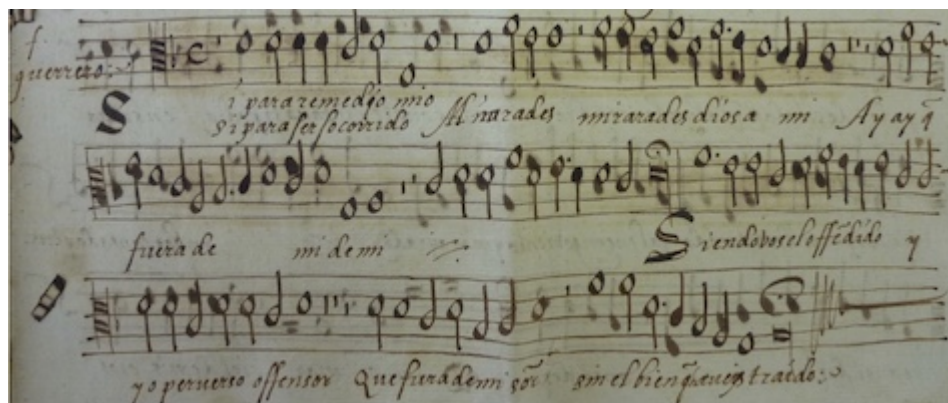 f
guerrero:
Si para remedio mio
Si para ser socorrido Mirarades mirarades dios a mi Ay ay q̃
fuera de mi de mi
Siendo vos el offẽdido y
yo perverso offensor Que fura de mi sõr sin el bien q̃ aueis traido: